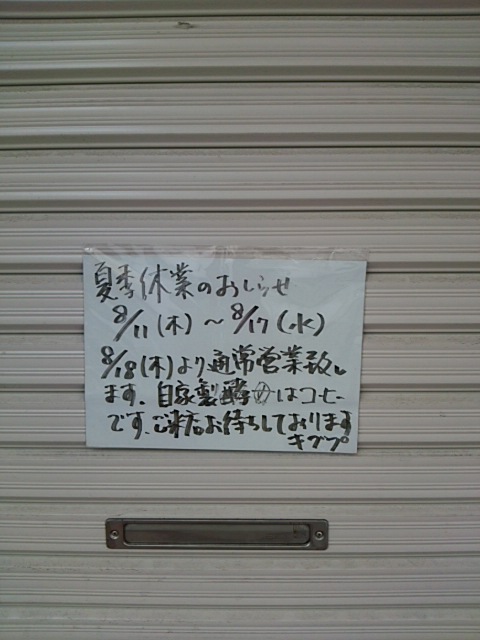 夏季休業のおしらせ
8/11(木)～8/17(水)
8/18(木)より通常営業致し
ます。自家製酵母はコーヒー
です。ご来店お待ちしております
キブプ